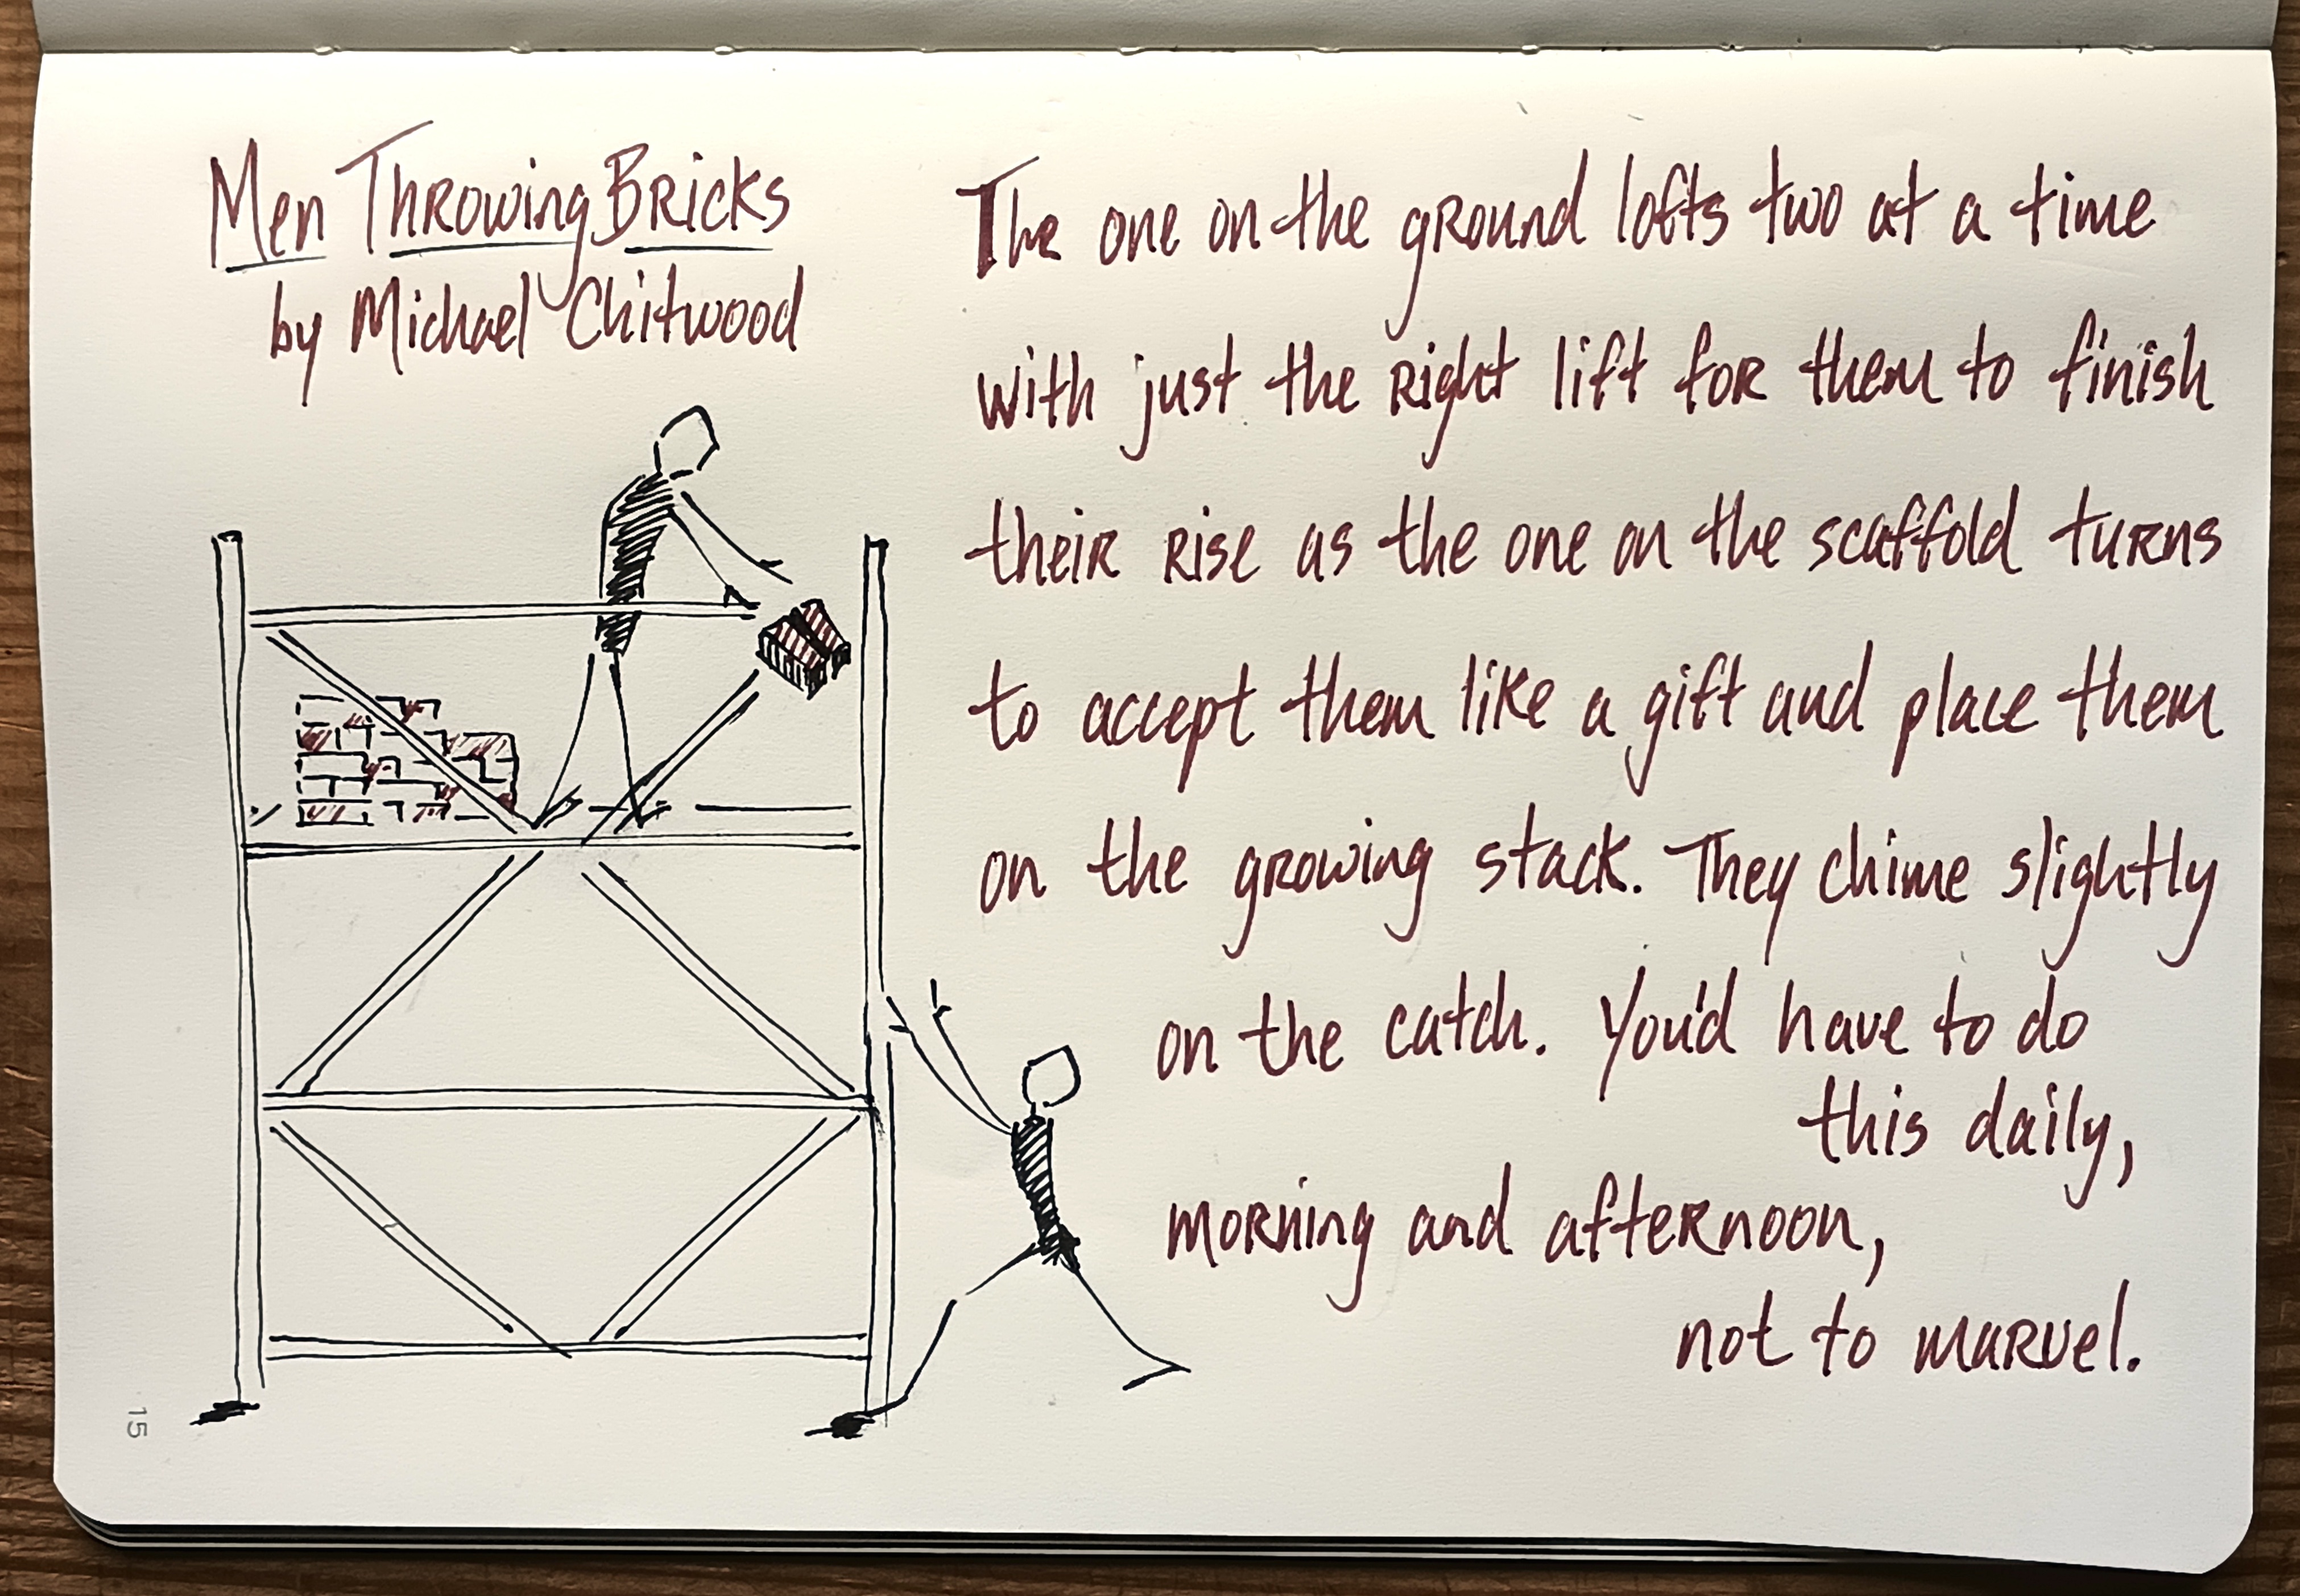 Men Throwing Bricks
by Michael Chitwood
The one on the ground lofts two at a time
with just the right lift for them to finish
their rise as the one on the scaffold turns
to accept them like a gift and place them
on the growing stack. They chime slightly
on the catch. You'd have to do
this daily,
morning and afternoon,
not to marvel.
15